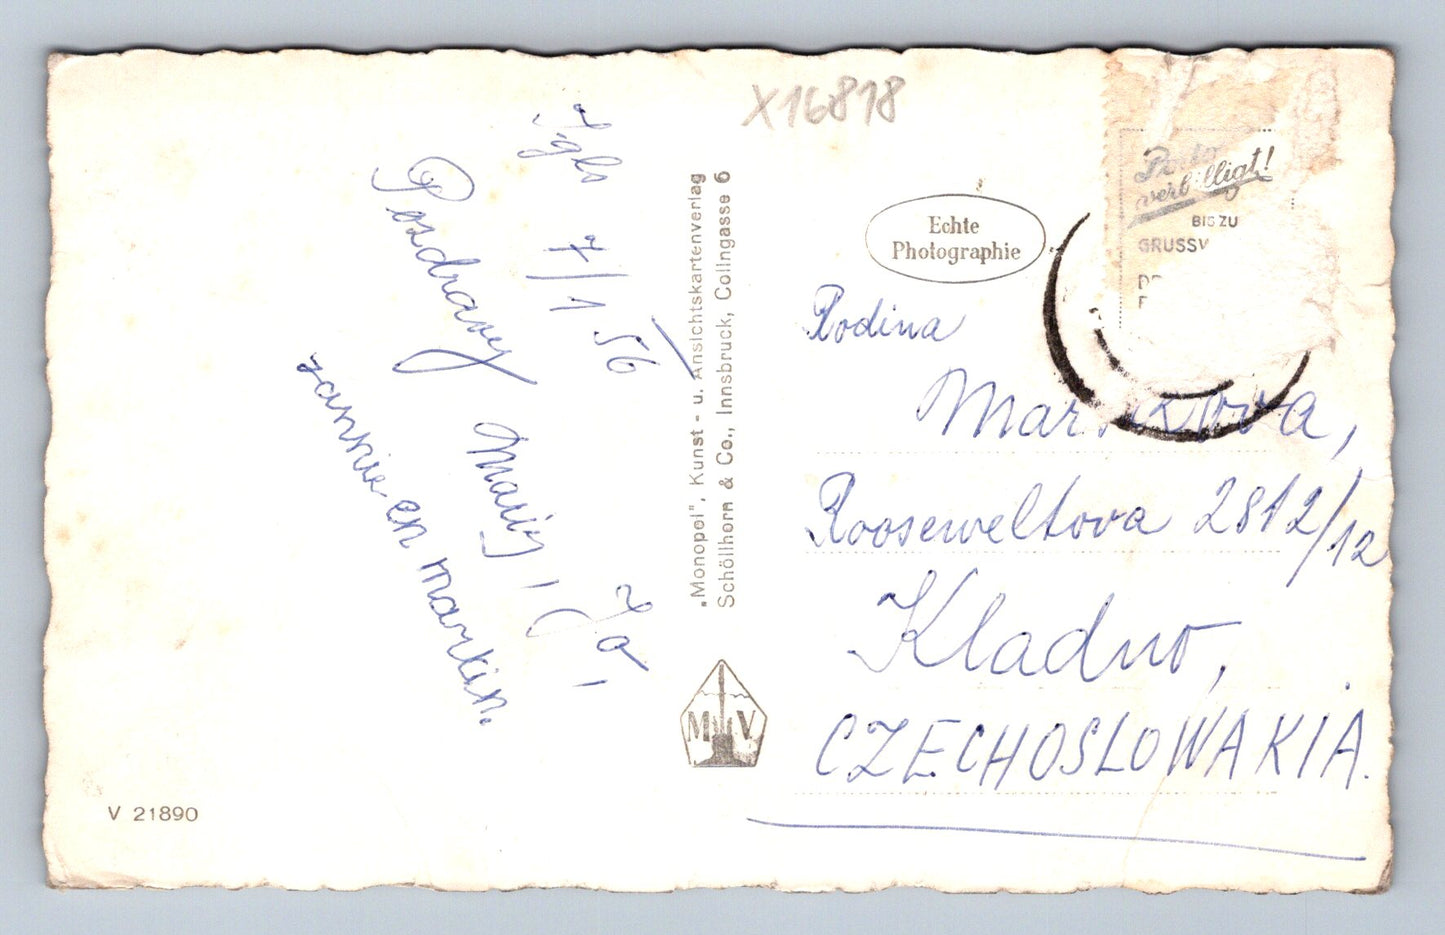 X16818
Igls 7/1 56
Pozdravy
Jo,
en markin.
"Monopol", Kunst- u. Ansichtskartenverlag
Schöllhorn & Co., Innsbruck, Colingasse 6
MV
V 21890
Echte
Photographie
Porto
verbilligt!
BIS ZU
GRUSSW
Rodina
Rooseweltova 2812/12
Kladno,
CZECHOSLOWAKIA.